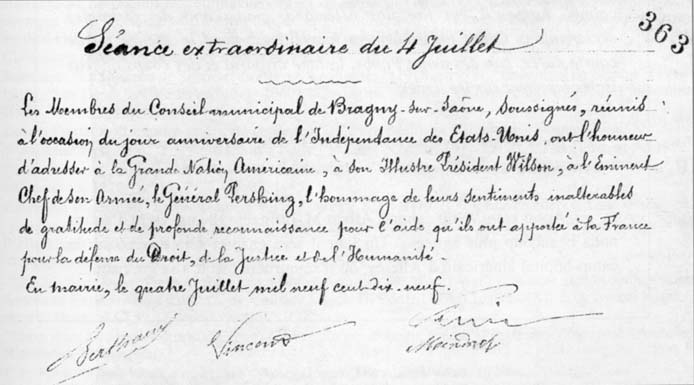 363
Séance extraordinaire du 4 Juillet
Les Membres du Conseil municipal de Bragny-sur-Saône, soussignés, réunis
à l'occasion du jour anniversaire de l'Indépendance des Etats-Unis, ont l'honneur
d'adresser à la Grande Nation Américaine, à son Illustre Président Wilson, à l'Eminent
Chef de son Armée, le Général Pershing, l'hommage de leurs sentiments inaltérables
de gratitude et de profonde reconnaissance pour l'aide qu'ils ont apportée à la France
pour la défense du Droit, de la Justice et de l'Humanité.
En mairie, le quatre Juillet mil neuf cent dix-neuf.
Berthaux Vincent